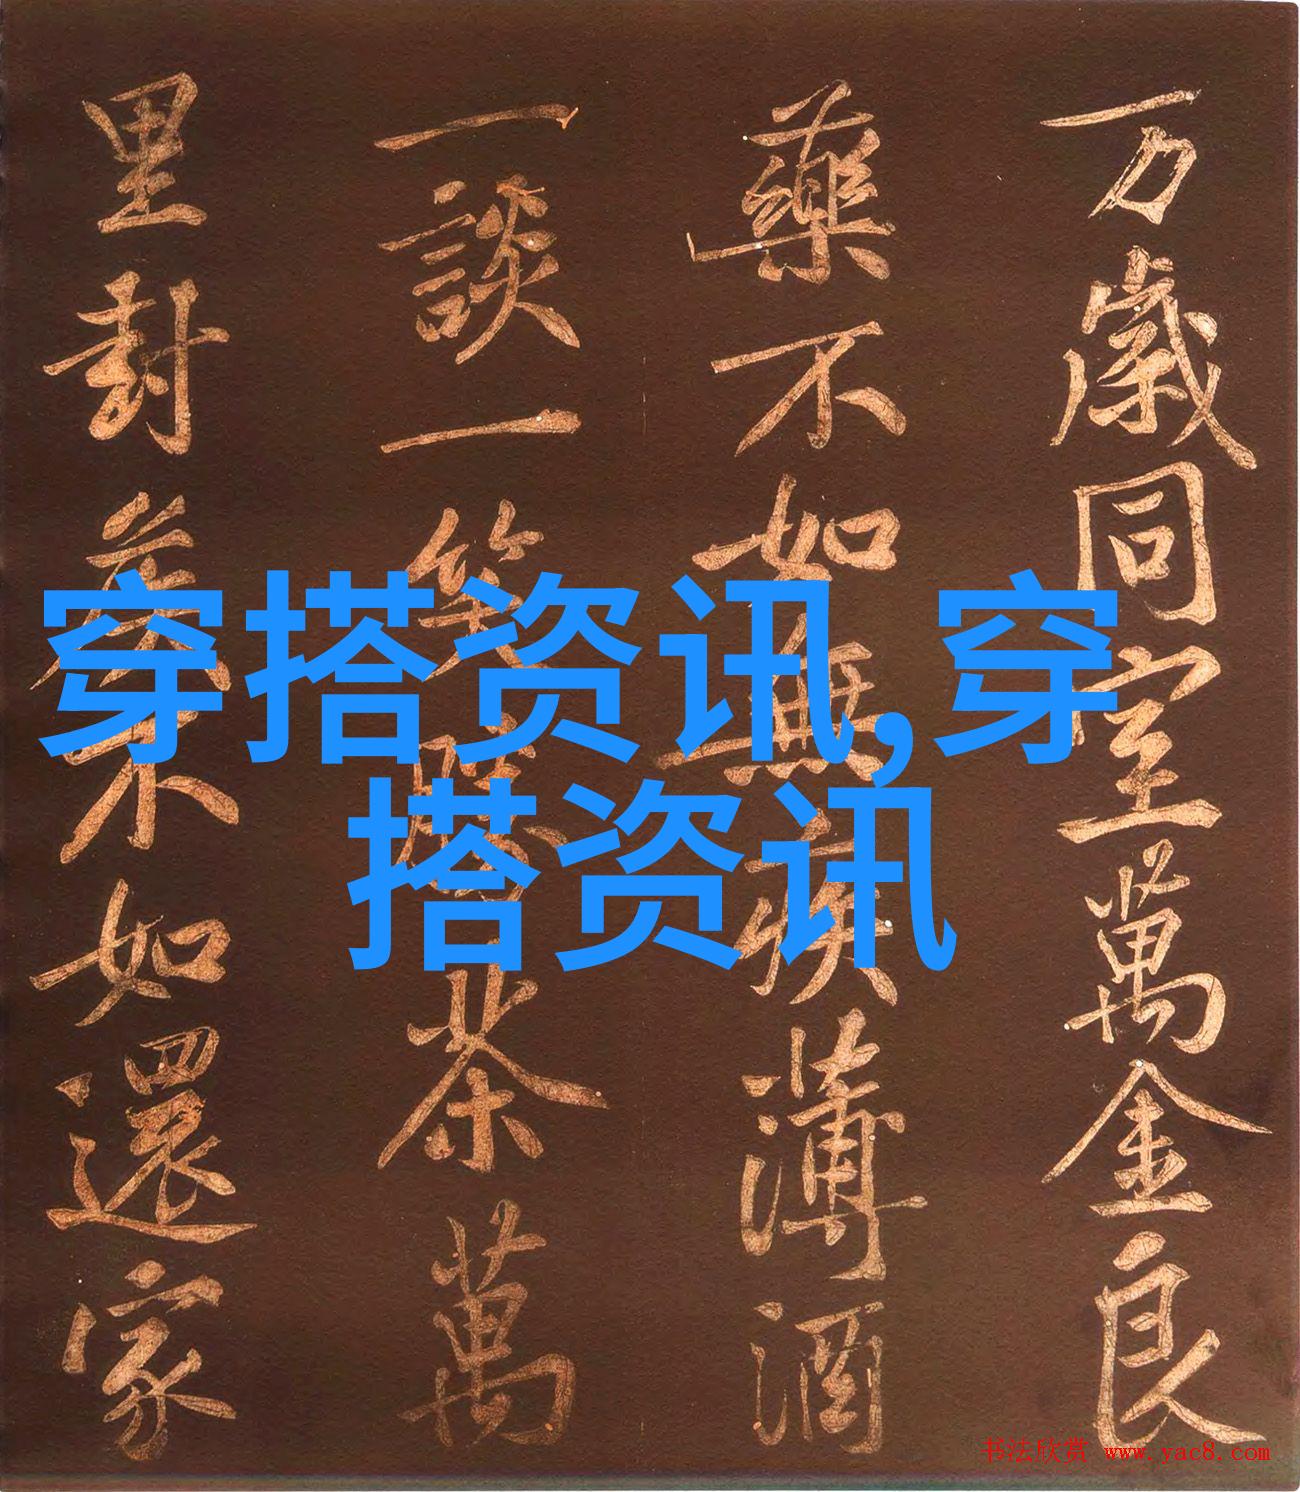 万歲同室萬金良
藥不如無疾薄酒
一談一笑勝茶萬
里封矦不如還家
穿搭资讯,穿
搭资讯
书法欣赏 www.yac8.com